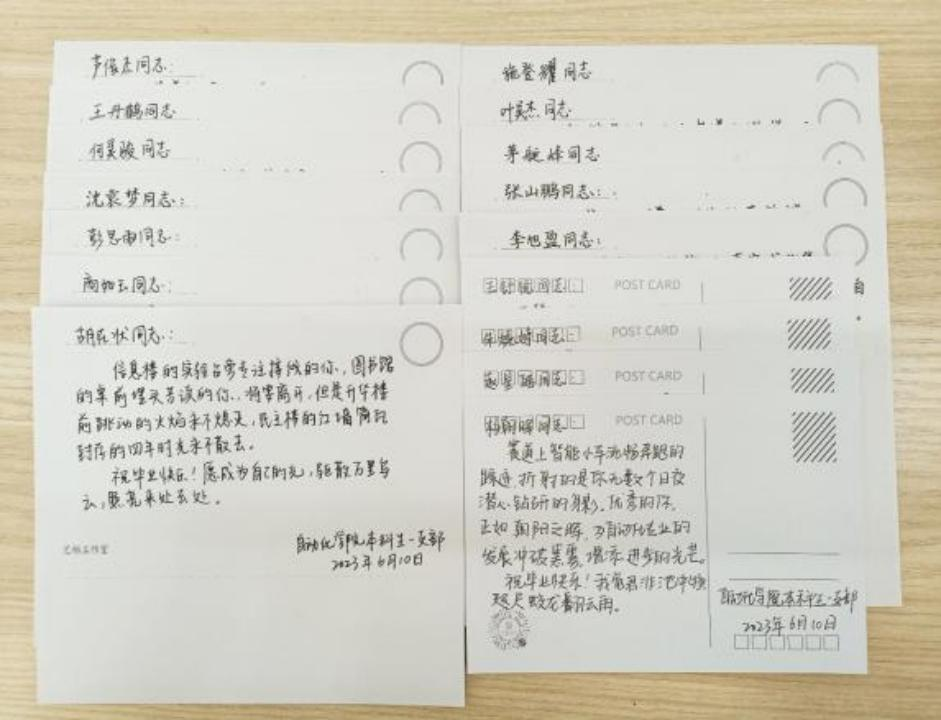 王丹鹤同志
何昊骏同志
沈袁梦同志:
彭思雨同志:
同志:
同志:
信息楼的实验台旁专注接线的你,图书馆
的桌前埋头苦读的你,将要离开,但是升华楼
前跳动的火焰永不熄灭,民主楼的红墙青瓦
封存的四年时光永不散去。
祝毕业快乐!愿成为自己的光,驱散万里乌
云,照亮来处去处。
自动化学院本科生一支部
2023年6月10日
施登耀同志
叶昊杰同志
茅艇烽同志
张山鹏同志:
李旭盈同志:
同志:
POST CARD
同志:
POST CARD
同志:
POST CARD
同志
POST CARD
赛道上智能小车流畅奔跑的
踪迹,折射的是你无数个日夜
潜心钻研的身影。优秀的你,
正如朝阳之晖,为自动化专业的
发展冲破黑雾,增添进步的光芒。
祝毕业快乐!我党君非池中物,
咫尺蛟龙翻云雨。
自动化学院本科生一支部
2023年6月10日